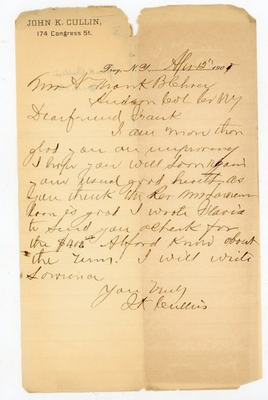 JOHN K. CULLIN,
174 Congress St.
Troy, N.Y. Apr 12" 190
Mr Frank B
Hudson Col Co NY
Dear friend Frank
I am more than
glad you are improving
I hope you will soon
your usual good health as
you think the Rev
loan is good I wrote
to send you a check for
the $400 know about
the Term. I will write
Lawrence
Yours Truly
J K Cullin